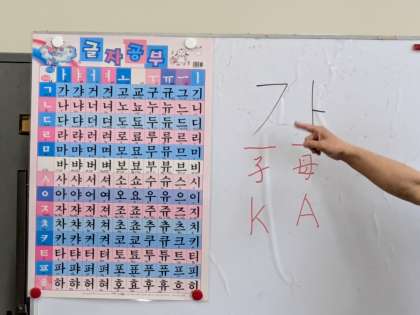 글자공부
ㅏ ㅑ ㅓ ㅕ ㅗ ㅜ ㅠ ㅡ ㅣ
ㄱ 가 갸 거 겨 고 교 구 규 그 기
ㄴ 나 냐 너 녀 노 뇨 누 뉴 느 니
ㄷ 다 댜 더 뎌 도 됴 두 듀 드 디
ㄹ 라 랴 러 려 로 료 루 류 르 리
ㅁ 마 먀 머 며 모 묘 무 뮤 므 미
바 뱌 버 벼 보 뵤 부 뷰 브 비
ㅅ 사 샤 서 셔 소 쇼 수 슈 스 시
ㅇ 아 야 어 여 오 요 우 유 으 이
ㅈ 자 쟈 저 져 조 죠 주 쥬 즈 지
ㅊ 차 챠 처 쳐 초 쵸 추 츄 츠 치
ㅋ 카 캬 커 켜 코 쿄 쿠 큐 크 키
ㅌ 타 탸 터 텨 토 툐 투 튜 트 티
ㅍ 파 퍄 퍼 펴 포 표 푸 퓨 프 피
ㅎ 하 햐 허 혀 호 효 후 휴 흐 히
가
子 母
K A